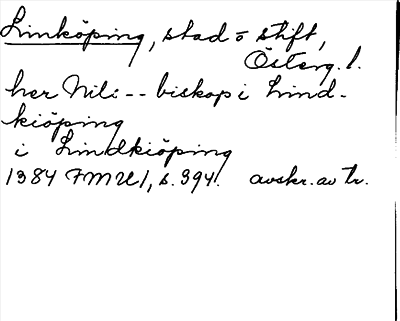 Linköping, stad o stift,
Österg. l.
her Nils -- biskop i Lind-
kiöping
i Lindkiöping
1384 FMU 1, s. 394. avskr. av tr.